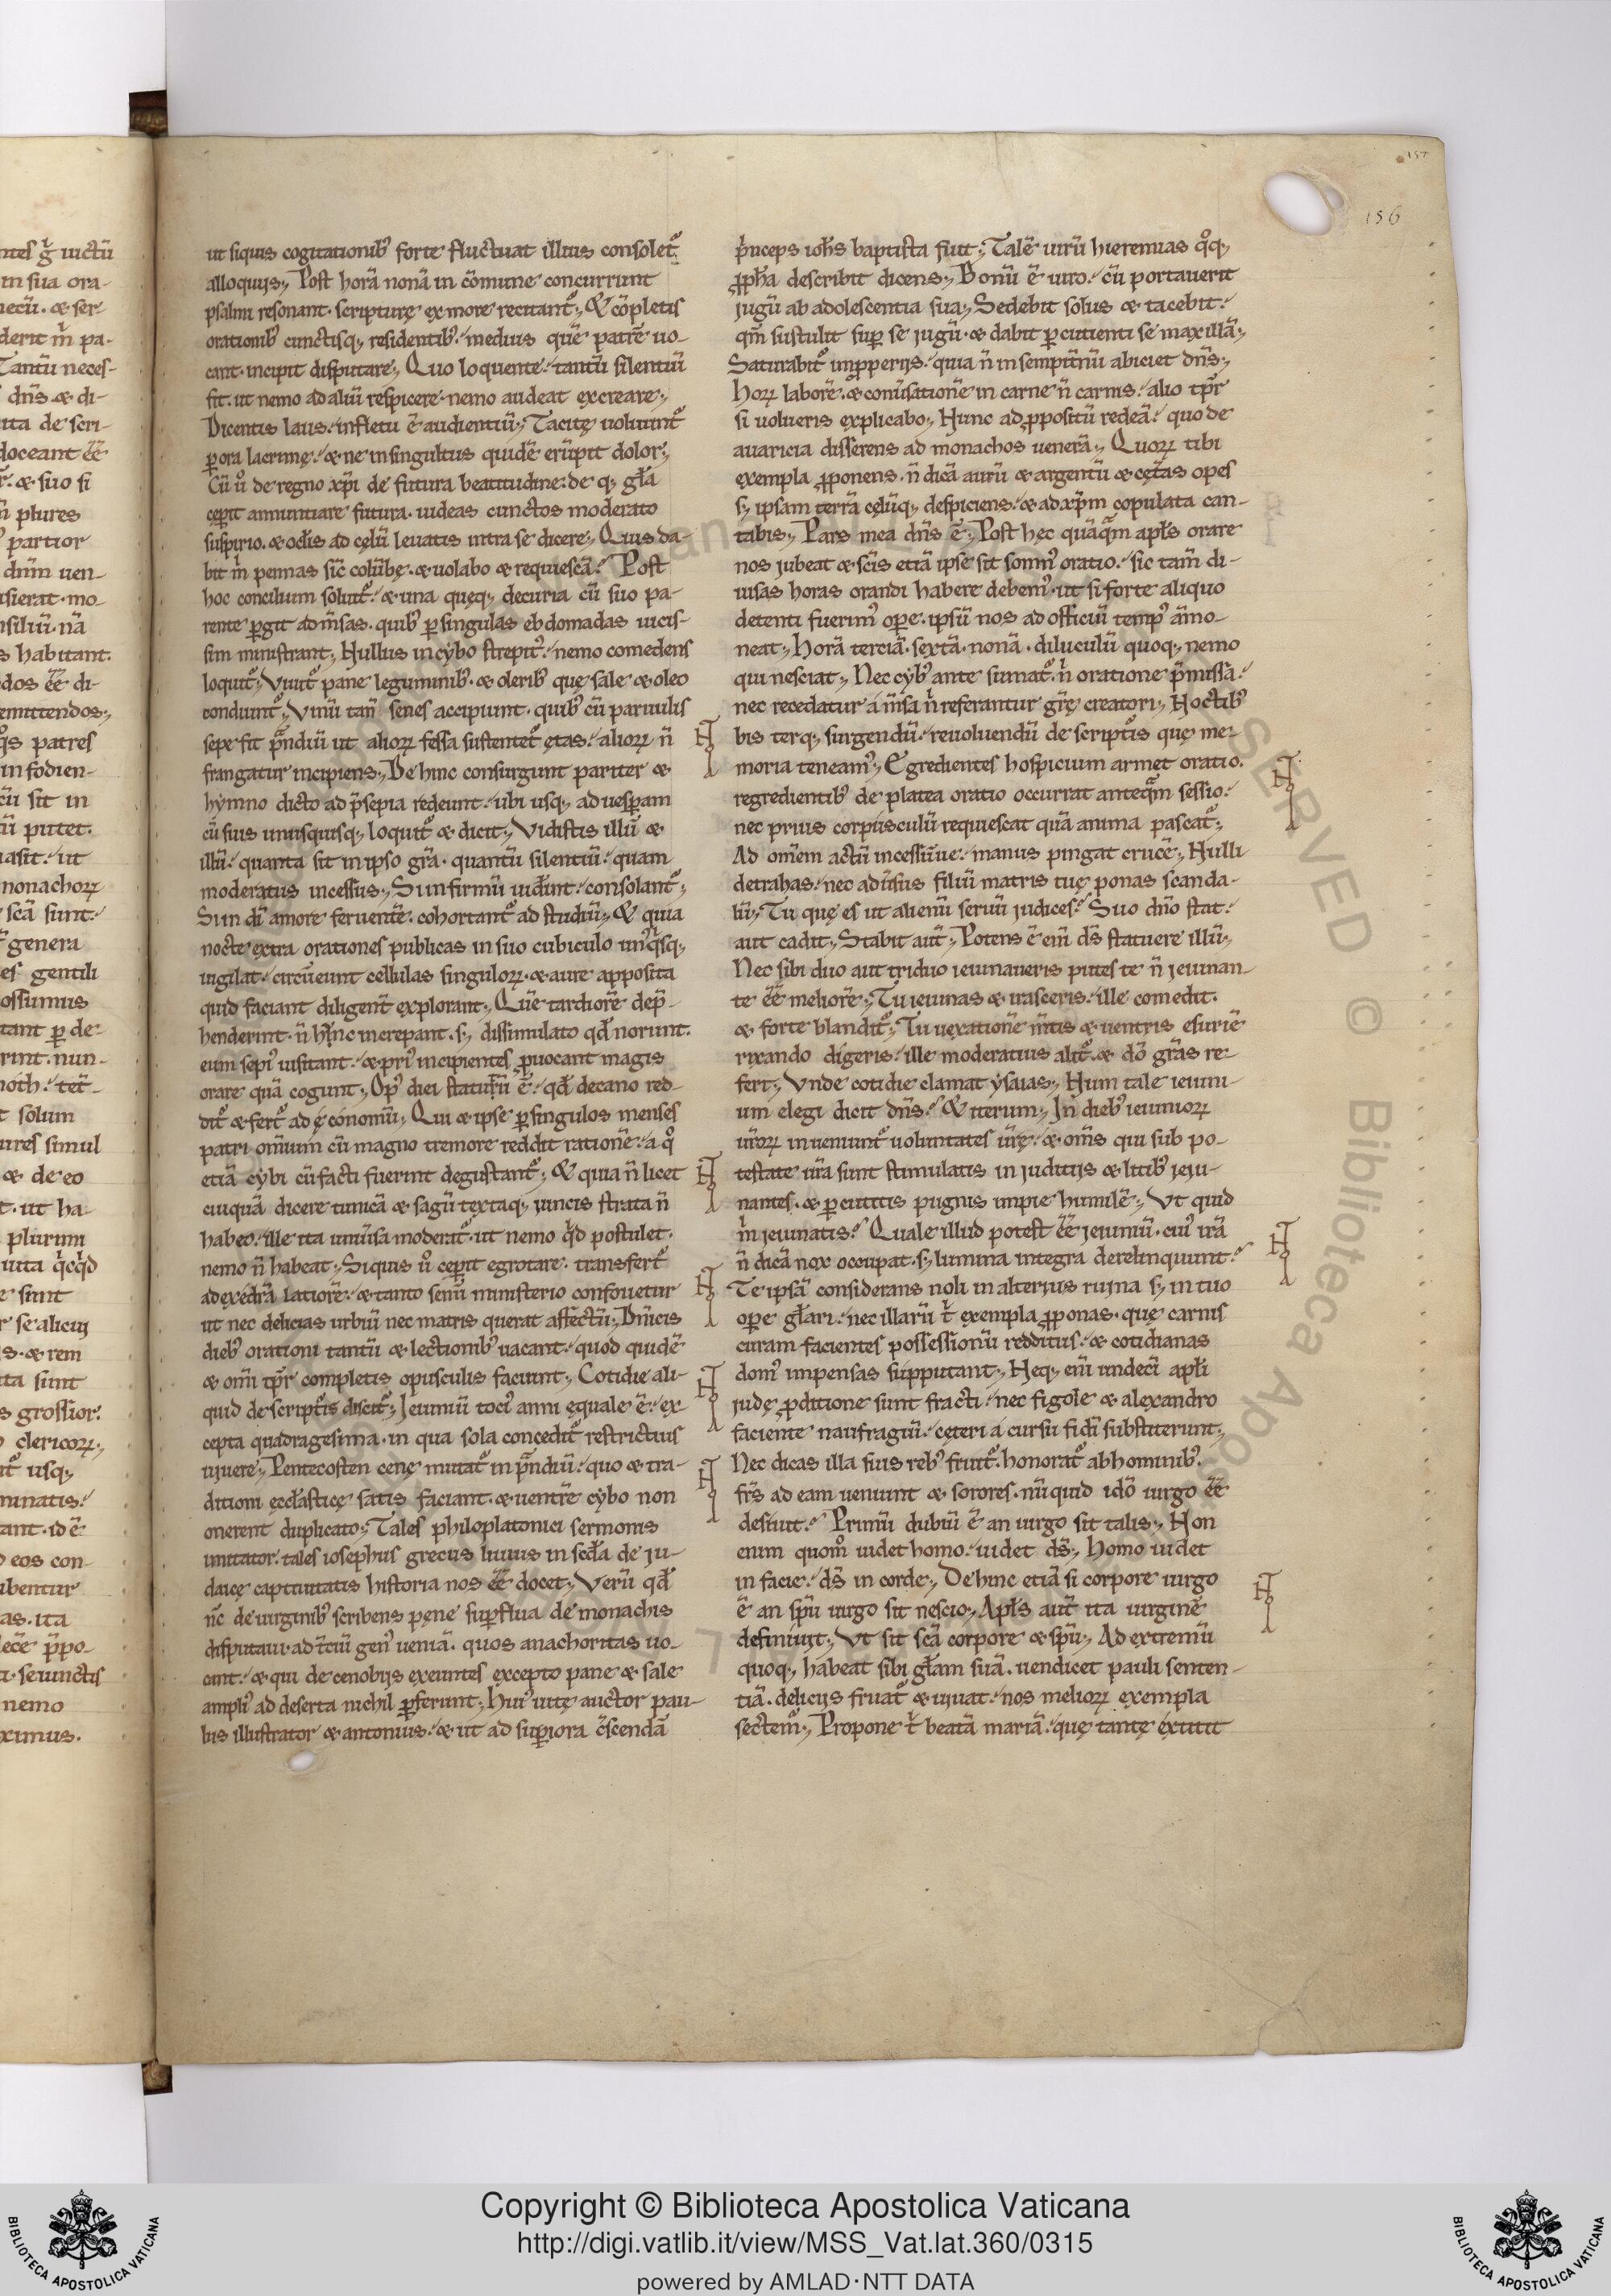 157
156
ut siquis cogitationib' forte fluctuat illius consolet᷑
alloquijs; Post horā nonā in cōmune concurrunt
psalmi resonant. scripturę ex more recitant᷑; & cōpletis
orationib' cunctisq; residentib'. medius quē patrē uo-
cant. incipit disputare; Quo loquente. tantū silentiū
fit. ut nemo ad aliū respicere. nemo audeat excreare;
Dicentis laus. in fletu ē audientiū; Tacitę uoluunt᷑
ꝑ ora lacrimę. & ne in singultus quidē erūpit dolor;
Cū ů de regno xp̄i de futura beatitudine. de q; gl̄a
cęperit annuntiare futura. uideas cunctos moderato
suspirio. & ocl̄is ad cęlū leuatis intra se dicere; Quis da-
bit m̄ pennas sic̄ colūbę. & uolabo & requiescā? Post
hoc concilium soluit᷑. & una quęq; decuria cū suo pa-
rente ꝑgit ad m̄sas. quib' ꝑ singulas ebdomadas uicis-
sim ministrant; Nullus in cybo strepit'. nemo comedens
loquit᷑; Viuit᷑ pane leguminib'. & olerib' quę sale & oleo
condiunt᷑; Vinū tan̄ senes accipiunt. quib' cū paruulis
sepe fit p̄ndiū ut alioꝝ fessa sustentet᷑ ętas. alioꝝ n̄
frangatur incipiens; De hinc consurgunt pariter &
hymno dicto ad p̄sepia redeunt. ubi usq; ad uesꝑam
cū suis unusquisq; loquit᷑ & dicit; Vidistis illū &
illū. quanta sit in ipso gr̄a. quantū silentiū. quam
moderatus incessus; Si infirmū uid̄int. consolant᷑;
Si in dī amore feruentē. cohortant᷑ ad studiū; & quia
nocte extra orationes publicas in suo cubiculo un'q'sq;
uigilat. circūeunt cellulas singuloꝝ. & aure apposita
quid faciant diligent̄ explorant; Quē tardiorē dep̄-
henderint. n̄ increpant. s; dissimulato qd̄ norunt.
eum sepi' uisitant. & pri' incipientes ꝓuocant magis
orare quā cogunt; Op' diei statutū ē. qd̄ decano red-
dit᷑ & fert᷑ ad ęconomū; Qui & ipse ꝑ singulos menses
patri om̄ium cū magno tremore reddit rationē. a q̊
etiā cybi cū facti fuerint degustant᷑; & quia n̄ licet
cuiquā dicere tunicā & sagū textaq; iuncis strata n̄
habeo. ille ita uniūsa moderat᷑. ut nemo q'd postulet.
nemo n̄ habeat; Siquis ů cęperit egrotare. transfert᷑
ad exedrā latiorē. & tanto senū ministerio confouetur
ut nec delicias urbiū nec matris querat affectū; Dn̄icis
dieb' orationi tantū & lectionib' uacant. quod quidē
& om̄i tp̄r completis opusculis faciunt; Cotidie ali-
quid de scripturis discit᷑; Ieiuniū toci' anni ęquale ē. ex-
cepta quadragesima. in qua sola concedit᷑ restrictius
uiuere; Pentecosten cenę mutat᷑ in p̄ndiū. quo & tra-
ditioni ęccl̄asticę satis faciant. & uentrē cybo non
onerent duplicato; Tales philoplatonici sermonis
imitator. tales iosephus grecus liuius in scd̄a de iu-
daicę captiuitatis historia nos ēē docet; Verū qd̄
nc̄ de uirginib' scribens pęne suꝑflua de monachis
disputaui. ad t̄ciū gen' ueniā. quos anachoritas uo-
cant. & qui de cenobijs exeuntes excepto pane & sale
ampli' ad deserta nichil ꝑferunt; Hui' uitę auctor pau-
lus illustrator & antonius. & ut ad suꝑiora c̄scendā
p̄nceps ioh̄s baptista fuit; Talē uirū hieremias q̊q;
ꝓph̄a describit dicens; Bonū ē uiro. cū portauerit
jugū ab adolescentia sua; Sedebit solus & tacebit.
qm̄ sustulit suꝑ se jugū. & dabit ꝑcutienti se maxillā;
Saturabit᷑ impꝓperijs. quia n̄ in sempit̄nū abiciet dn̄s;
Hoꝝ laborē. & conūsationē in carne n̄ carnis. alio tp̄r
si uolueris explicabo; Nunc ad ꝓpositū redeā. quo de
auaricia disserens ad monachos uenerā; Quoꝝ tibi
exempla ꝓponens. n̄ dicā aurū & argentū & cęt̄as opes
s; ipsam terrā cęlūq; despiciens. & ad xp̄m copulata can-
tabis; Pars mea dn̄s ē; Post hęc quāqm̄ apl̄s orare
nos jubeat & sc̄is etiā ipse sit somn' oratio. sic tam̄ di-
uisas horas orandi habere debem'. ut si forte aliquo
detenti fuerim' oꝑe. ipsū nos ad officiū temp' āmo-
neat; Horā terciā. sextā. nonā. diluculū quoq; nemo
qui nesciat; Nec cyb' ante sumat᷑. n' oratione p̄missa.
nec recedatur á m̄sa n' referantur gr̄ę creatori; Noctib'
bis terq; surgendū. reuoluendū de scripturis quę me-
moria teneam'; Egredientes hospicium armet oratio.
regredientib' de platea oratio occurrat anteqm̄ sessio.
nec prius corpusculū requiescat quā anima pascat᷑;
Ad om̄em actū incessūue. manus pingat crucē; Nulli
detrahas. nec adūsus filiū matris tuę ponas scanda-
lū; Tu quę es ut alienū seruū judices? Suo dn̄o stat.
aut cadit; Stabit aut̄; Potens ē em̄ ds̄ statuere illū;
Nec sibi duo aut triduo ieiunaueris putes te n̄ jeiunan-
te ēē meliorē; Tu ieiunas & irasceris. ille comedit.
& forte blandit᷑; Tu uexationē m̄tis & uentris esuriē
rixando digeris. ille moderatius alit᷑. & dō gr̄as re-
fert; Vnde cotidie clamat ysaias; Num tale ieiuni-
um elegi dicit dn̄s? & iterum; In dieb' ieiunioꝝ
ur̄oꝝ inueniunt᷑ uoluntates ur̄ę. & om̄s qui sub po-
testate ur̄a sunt stimulatis in juditijs & litib' jeju-
nantes. & ꝑcutitis pugnis impie humilē; Vt quid
m' jeiunatis? Quale illud potest ēē jeiuniū. cui' irā
n̄ dicā nox occupat. s; lumina integra derelinquunt?
Te ipsā considerans noli in alterius ruina s; in tuo
oꝑe gl̄ari. nec illarū t' exempla ꝓponas. quę carnis
curam facientes possessionū redditus. & cotidianas
dom' impensas supputant; Neq; em̄ undecī apl̄i
judę ꝓditione sunt fracti. nec figole & alexandro
faciente naufragiū. cęteri á cursu fidī substiterunt;
Nec dicas illa suis reb' fruit᷑. honorat᷑ ab hominib'.
fr̄s ad eam ueniunt & sorores. nūquid idō uirgo ēē
desiuit? Primū dubiū ē an uirgo sit talis; Non
enim quom̊ uidet homo. uidet ds̄; Homo uidet
in facie. ds̄ in corde; De hinc etiā si corpore uirgo
ē an sp̄u uirgo sit nescio; Apl̄s aut̄ ita uirginē
definiuit; Vt sit sc̄a corpore & sp̄u; Ad extremū
quoq; habeat sibi gl̄am suā. uendicet pauli senten-
tiā. delicijs fruat᷑ & uiuat. nos melioꝝ exempla
sectem᷑; Propone t' beatā mariā. quę tantę extitit
Copyright © Biblioteca Apostolica Vaticana
http://digi.vatlib.it/view/MSS_Vat.lat.360/0315
powered by AMLAD·NTT DATA
BIBLIOTECA APOSTOLICA VATICANA
BIBLIOTECA APOSTOLICA VATICANA